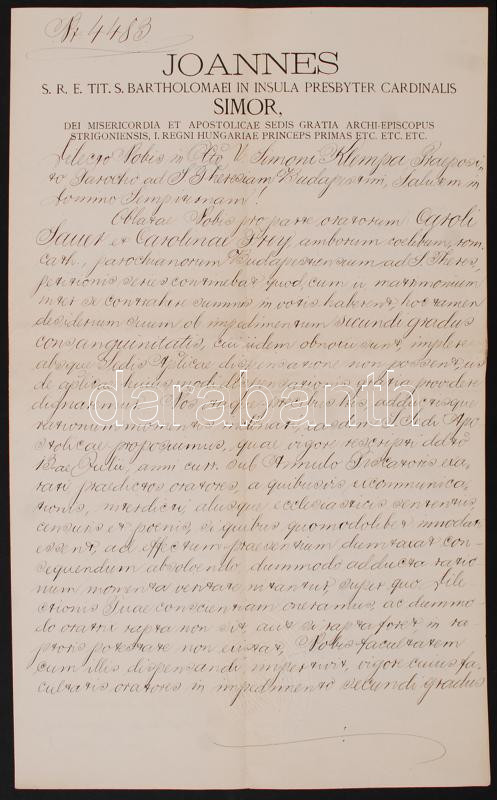 Nr 4483
JOANNES
S. R. E. TIT. S. BARTHOLOMAEI IN INSULA PRESBYTER CARDINALIS
SIMOR,
DEI MISERICORDIA ET APOSTOLICAE SEDIS GRATIA ARCHI-EPISCOPUS
STRIGONIENSIS, I. REGNI HUNGARIAE PRINCEPS PRIMAS ETC. ETC. ETC.
Dilecto Nobis in Simoni Klempa Praeposi-
to Parocho ad S Theresiam Budapestini, Salutem in
Domino Sempiternam!
Oblatae Nobis pro parte oratorum Caroli
Sauer et Carolinae Frey, amborum coelibum, rom.
cath., parochianorum Budapestinensium ad S Theres.,
petitionis series continebat, quod, cum ii matrimonium
inter se contrahere summis in votis haberent, hoc tamen
desiderium suum ob impedimentum secundi gradus
consanguinitatis, cui iidem obnoxii sunt, implere
absque Sedis Aplicae dispensatione non possent, iis
de dispensationis gratia providere
dignaremur. Nos itaque precibus his, adductisque
rationum momentis S. Sedi Apo-
stolicae proposuimus, quae vigore rescripti ddto
Julii, anni curr. sub Annulo Piscatoris exa-
rati praedictos oratores, a quibusvis excommunica-
tionis, interdicti, aliisque ecclesiasticis sententiis,
censuris et poenis, si quibus quomodolibet innodati
essent, ad effectum praesentium dumtaxat con-
sequendum absolvendo, dummodo adducta ratio-
num momenta veritate nitantur, super quo Dile-
ctionis Tuae conscientiam oneramus, ac dummo-
do oratrix rapta non sit, aut si rapta foret in ra-
ptoris potestate non existat, Nobis facultatem
cum illis dispensandi impertivit, vigore cuius fa-
cultatis oratores in impedimento secundi gradus
darabanth